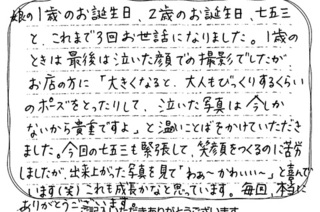 娘の1歳のお誕生日、2歳のお誕生日、七五三
と、これまで3回お世話になりました。1歳の
ときは最後は泣いた顔での撮影でしたが、
お店の方に「大きくなると、大人もびっくりするくらい
のポーズをとったりして、泣いた写真は今しか
ないから貴重ですよ」と温いことばをかけていただき
ました。今回の七五三も緊張して、笑顔をつくるのに苦労
しましたが、出来上がった写真を見て「わぁ~かわいい~」と喜んで
います(笑)これも成長かなと思っています。毎回、本当に
ありがとうございます。
いただきありがとうございます